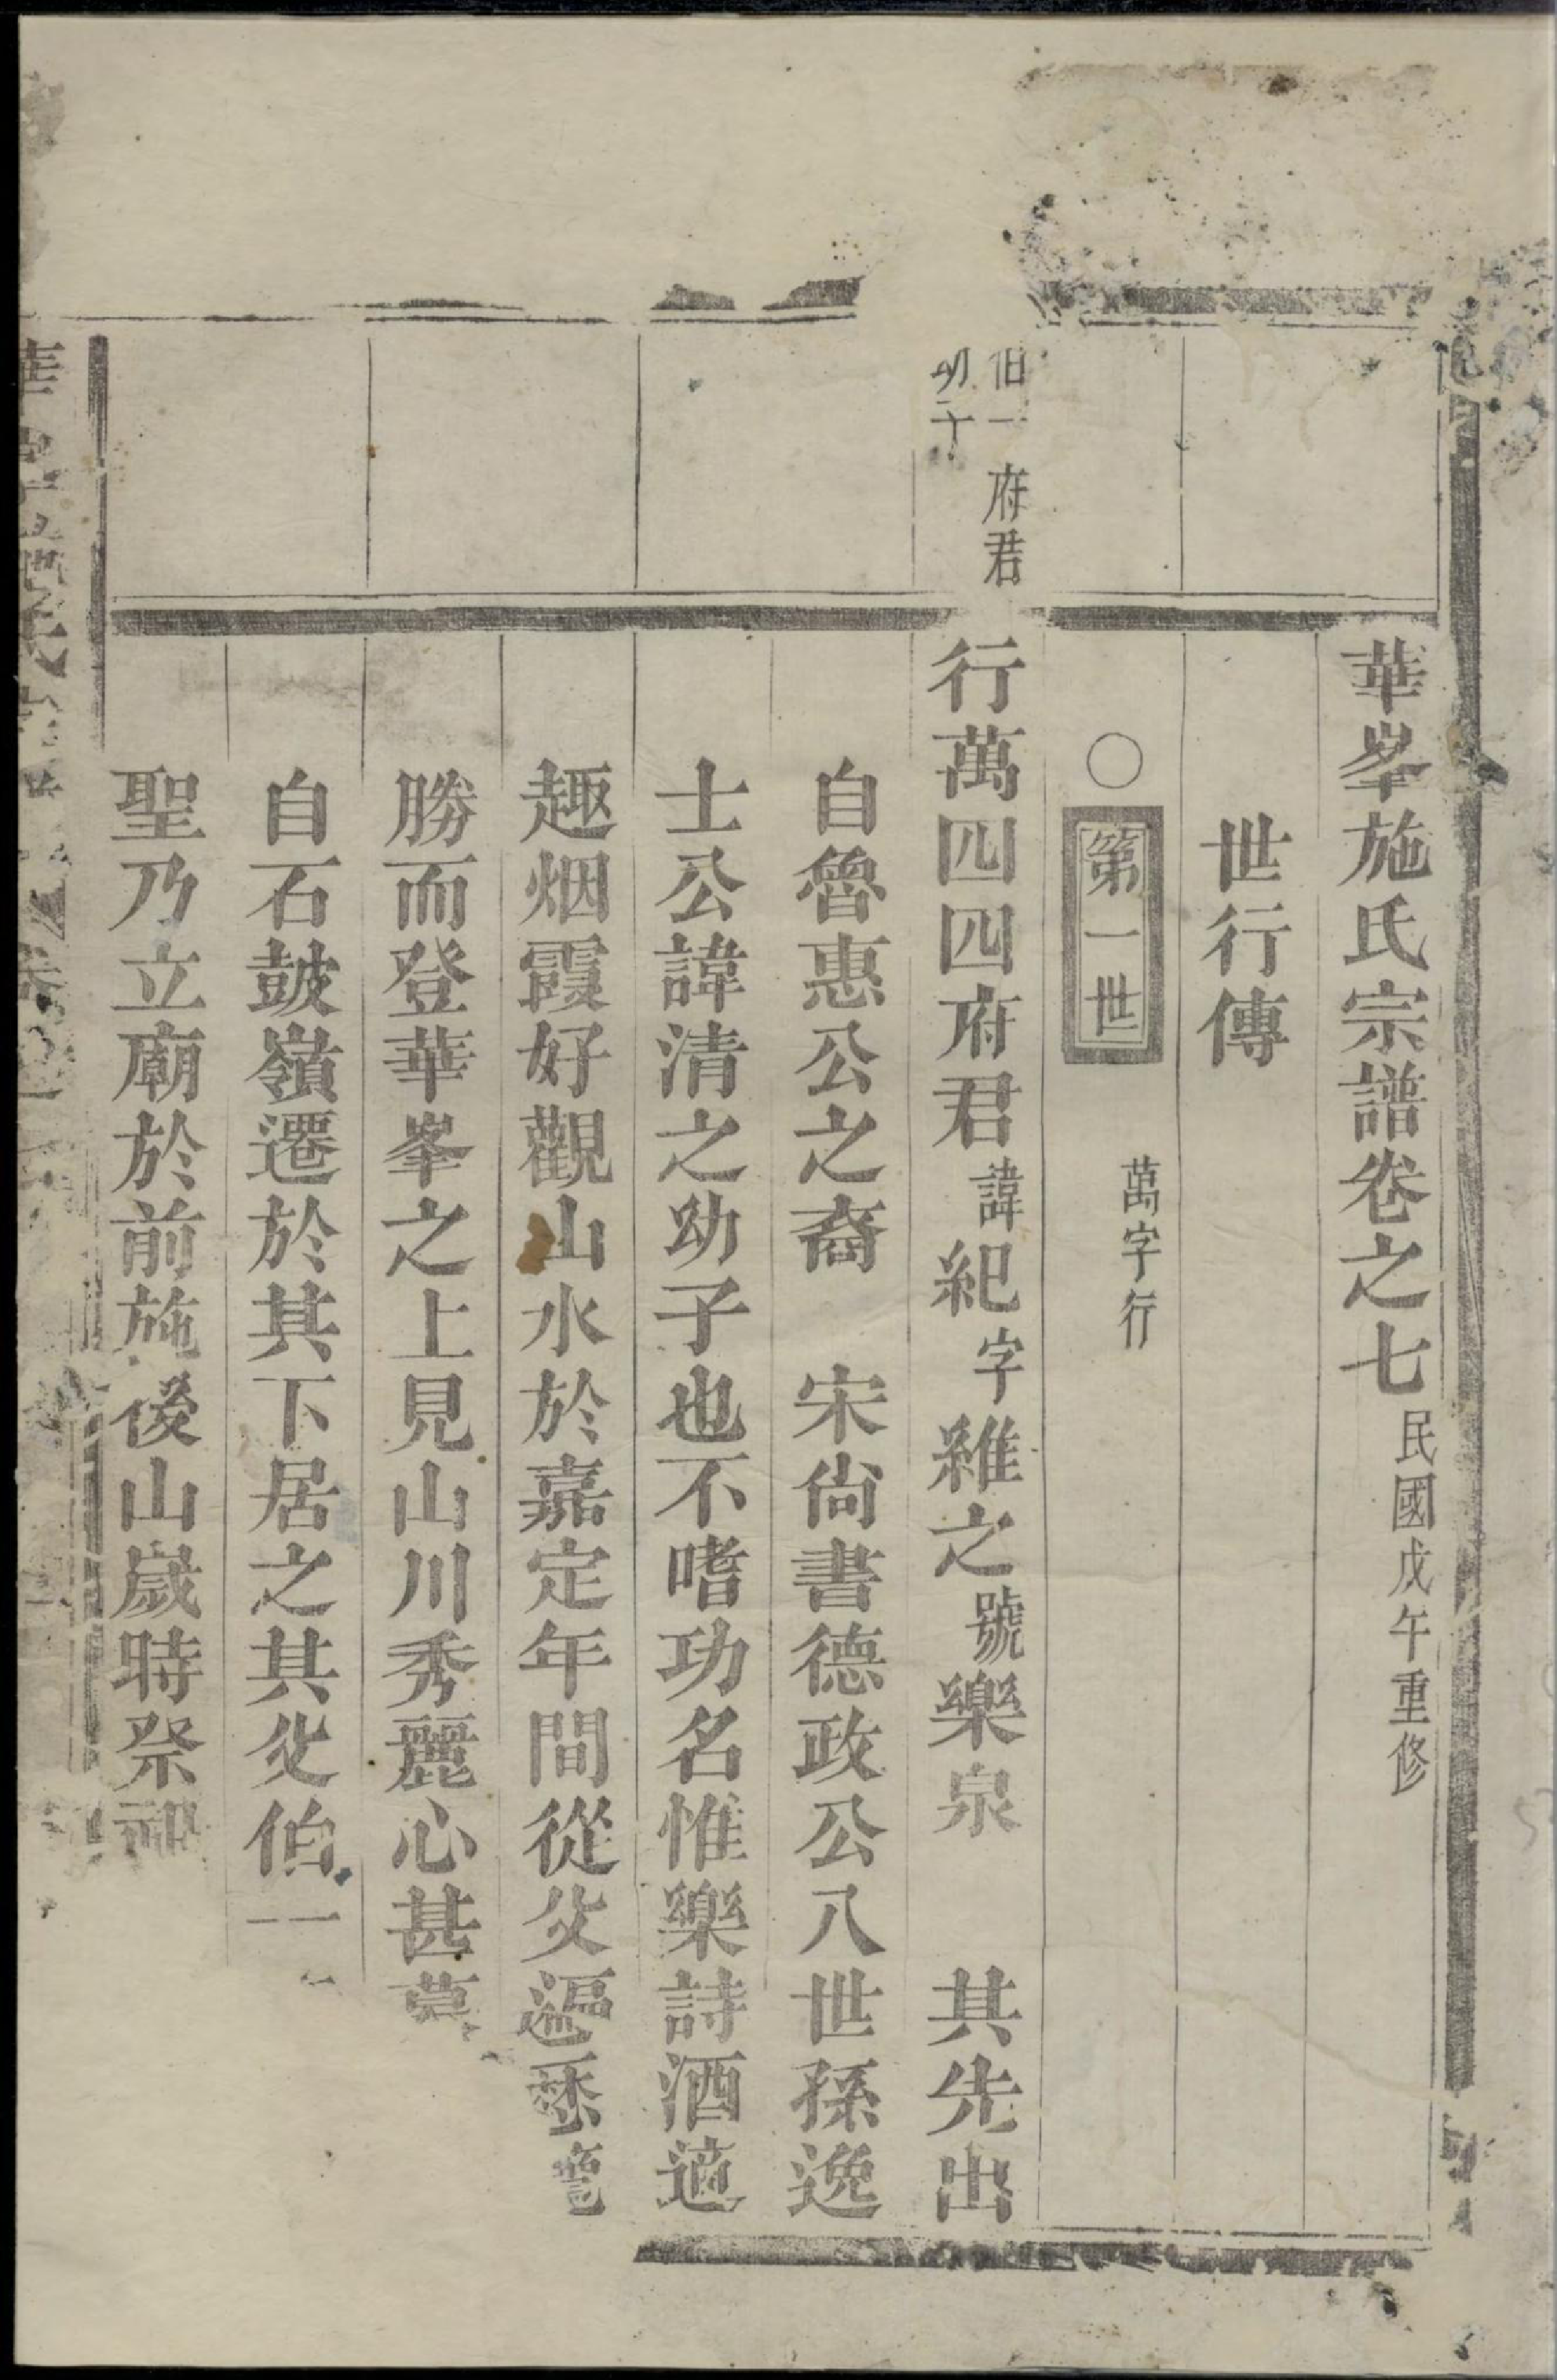 華峯施氏宗譜卷之七民國戊午重修
世行傳
○第一世 萬字行
伯一府君
幼子
行萬四四府君諱紀字維之號樂泉 其先出
自魯惠公之裔 宋尙書德政公八世孫逸
士公諱清之幼子也不嗜功名惟樂詩酒適
趣烟霞好觀山水於嘉定年間從父遍
勝而登華峯之上見山川秀麗心甚
自石皷嶺遷於其下居之其父伯一
聖乃立廟於前施後山歲時祭祀